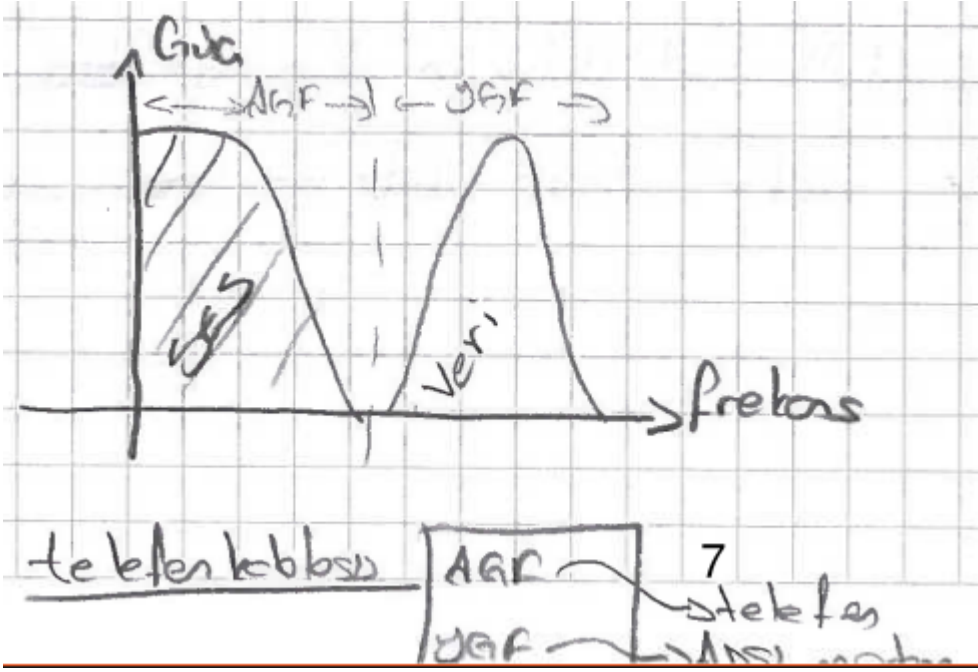 Güç
AGF YGF
SES
Veri
frekans
telefon kablosu
AGF
7
telefon
YGF
ADSL modem